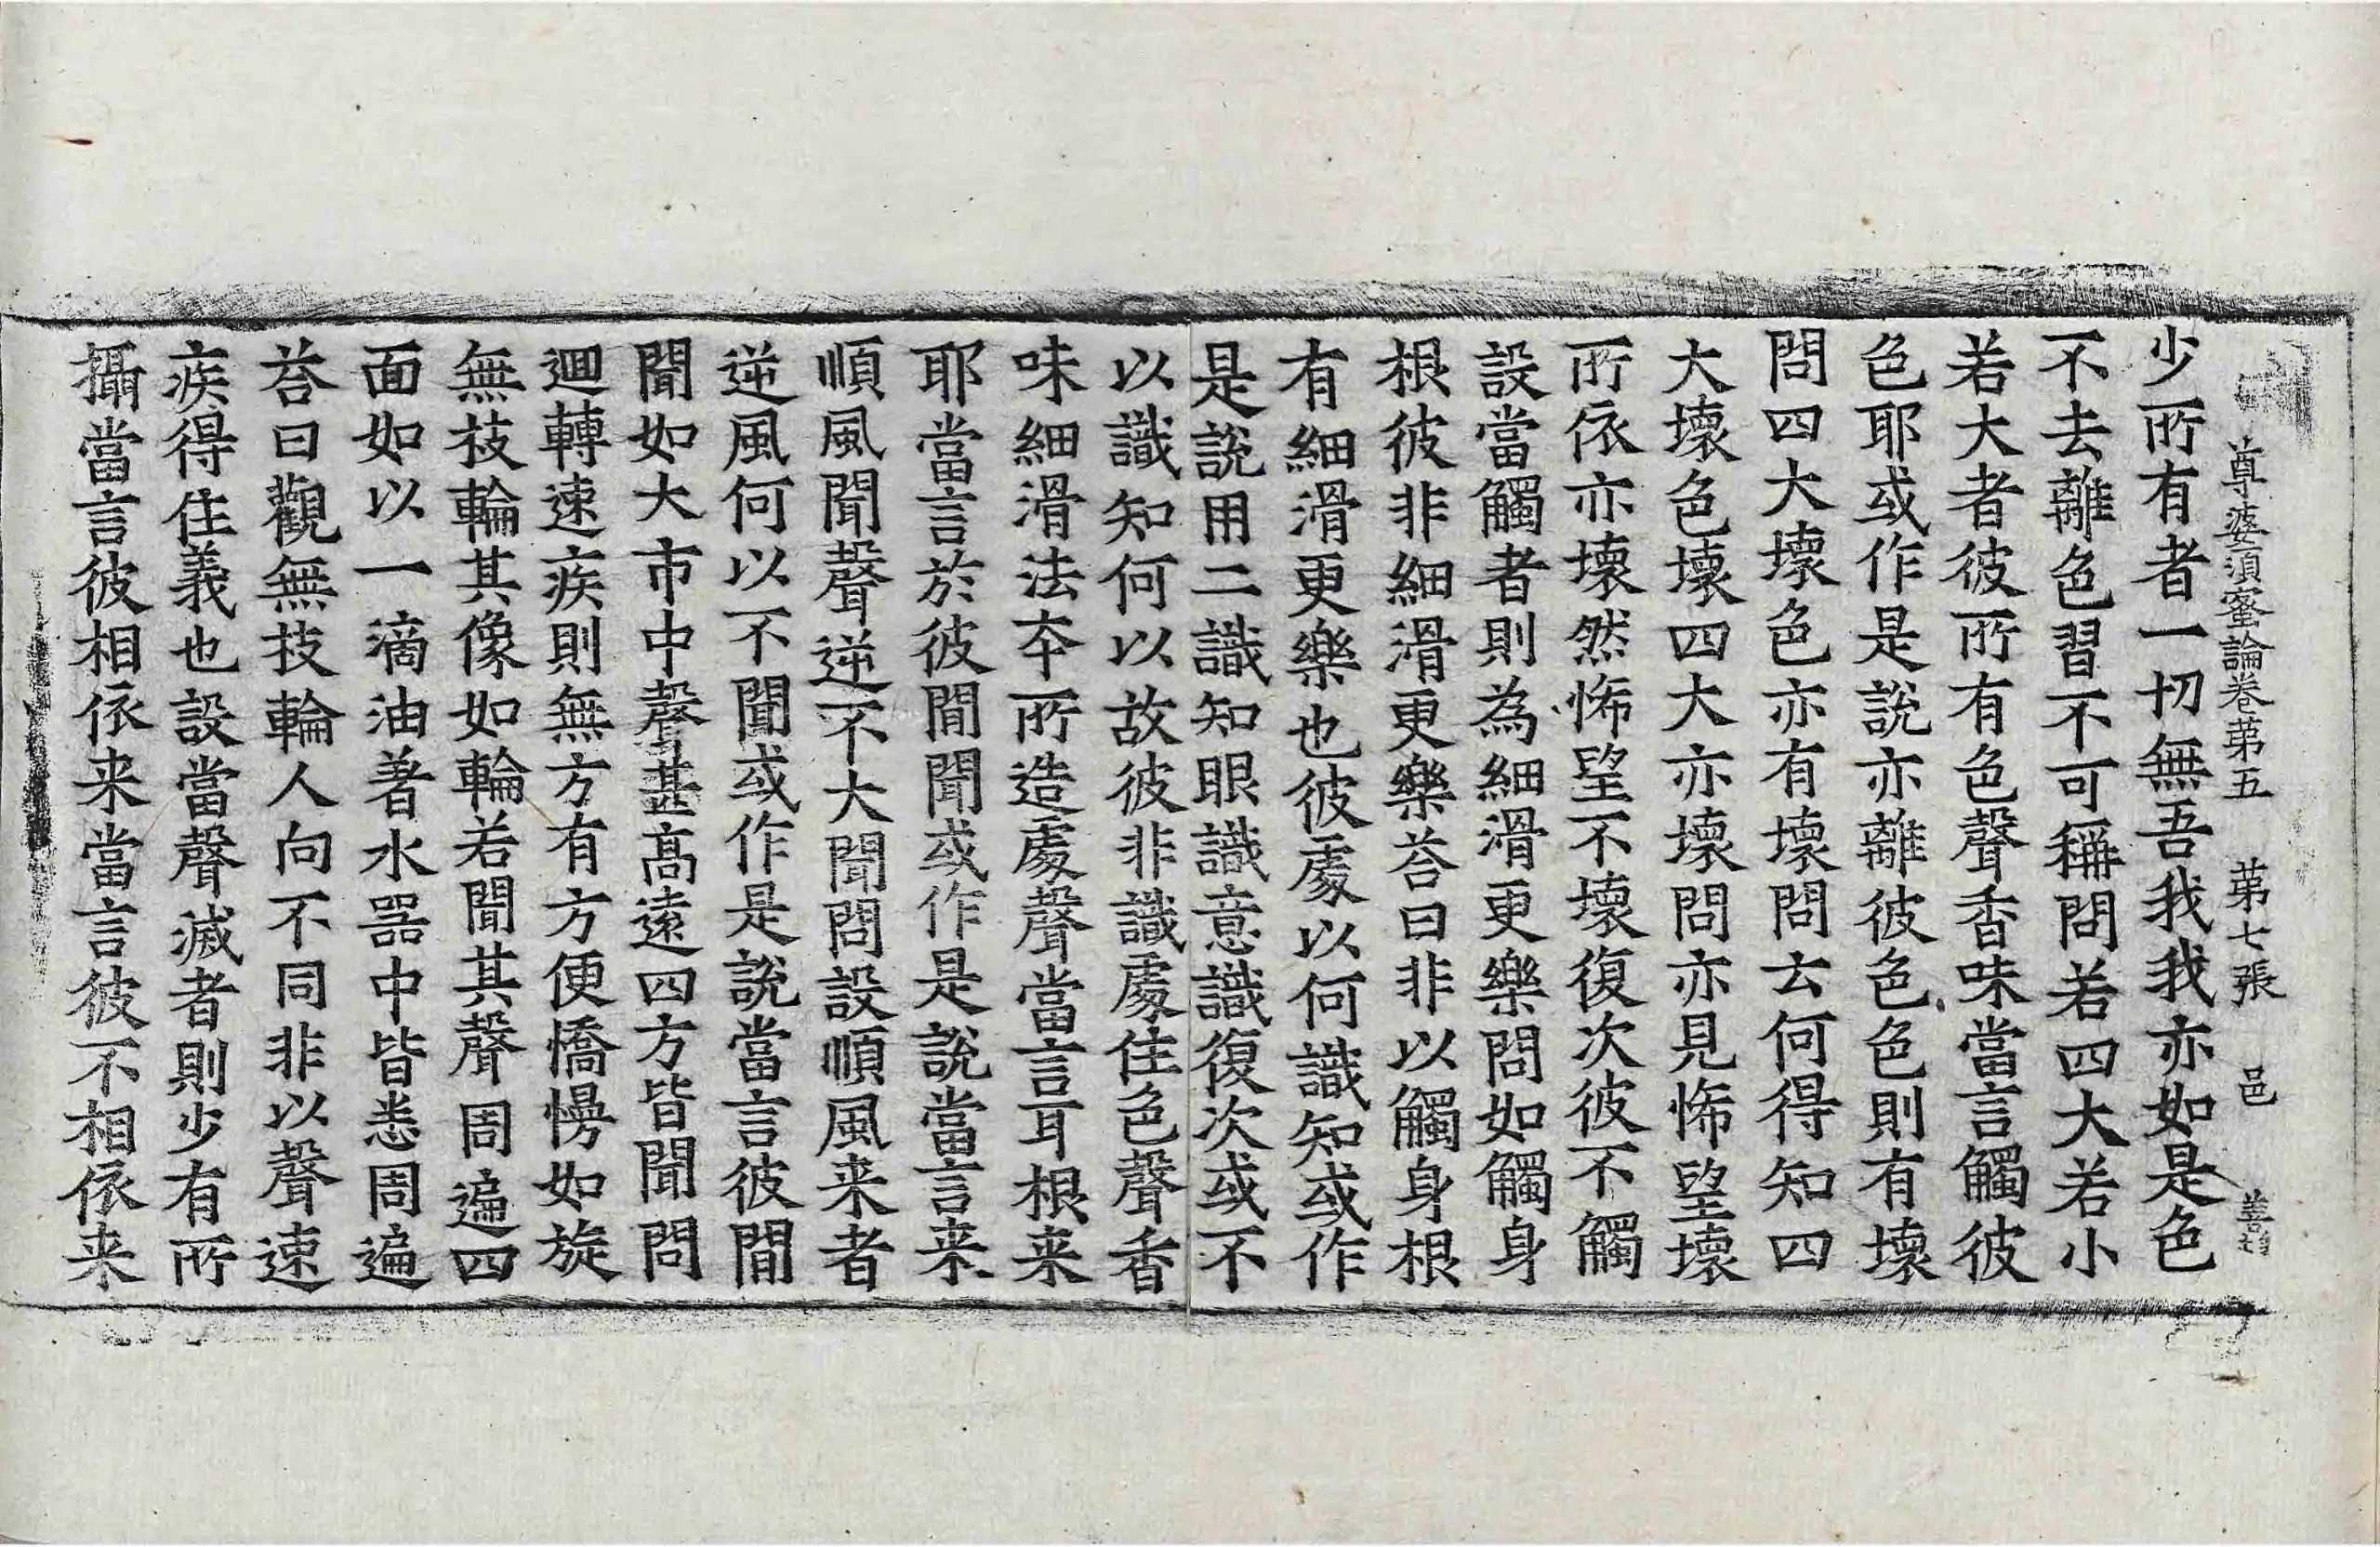 尊婆須蜜論卷苐五 苐七張 邑
少所有者一切無吾我我亦如是色
不去離色習不可稱問若四大若小
若大者彼所有色聲香味當言觸彼
色耶或作是說亦離彼色色則有壞
問四大壞色亦有壞問云何得知四
大壞色壞四大亦壞問亦見怖望壞
所依亦壞然怖望不壞復次彼不觸
設當觸者則為細滑更樂問如觸身
根彼非細滑更樂荅曰非以觸身根
有細滑更樂也彼處以何識知或作
是說用二識知眼識意識復次或不
以識知何以故彼非識處住色聲香
味細滑法夲所造處聲當言耳根来
耶當言於彼間聞或作是說當言来
順風聞聲逆不大聞問設順風来者
逆風何以不聞或作是說當言彼間
聞如大市中聲甚高遠四方皆聞問
迴轉速疾則無方有方便憍慢如旋
無枝輪其像如輪若聞其聲周遍四
面如以一滴油著水器中皆悉周遍
荅曰觀無技輪人向不同非以聲速
疾得住義也設當聲滅者則少有所
攝當言彼相依来當言彼不相依来